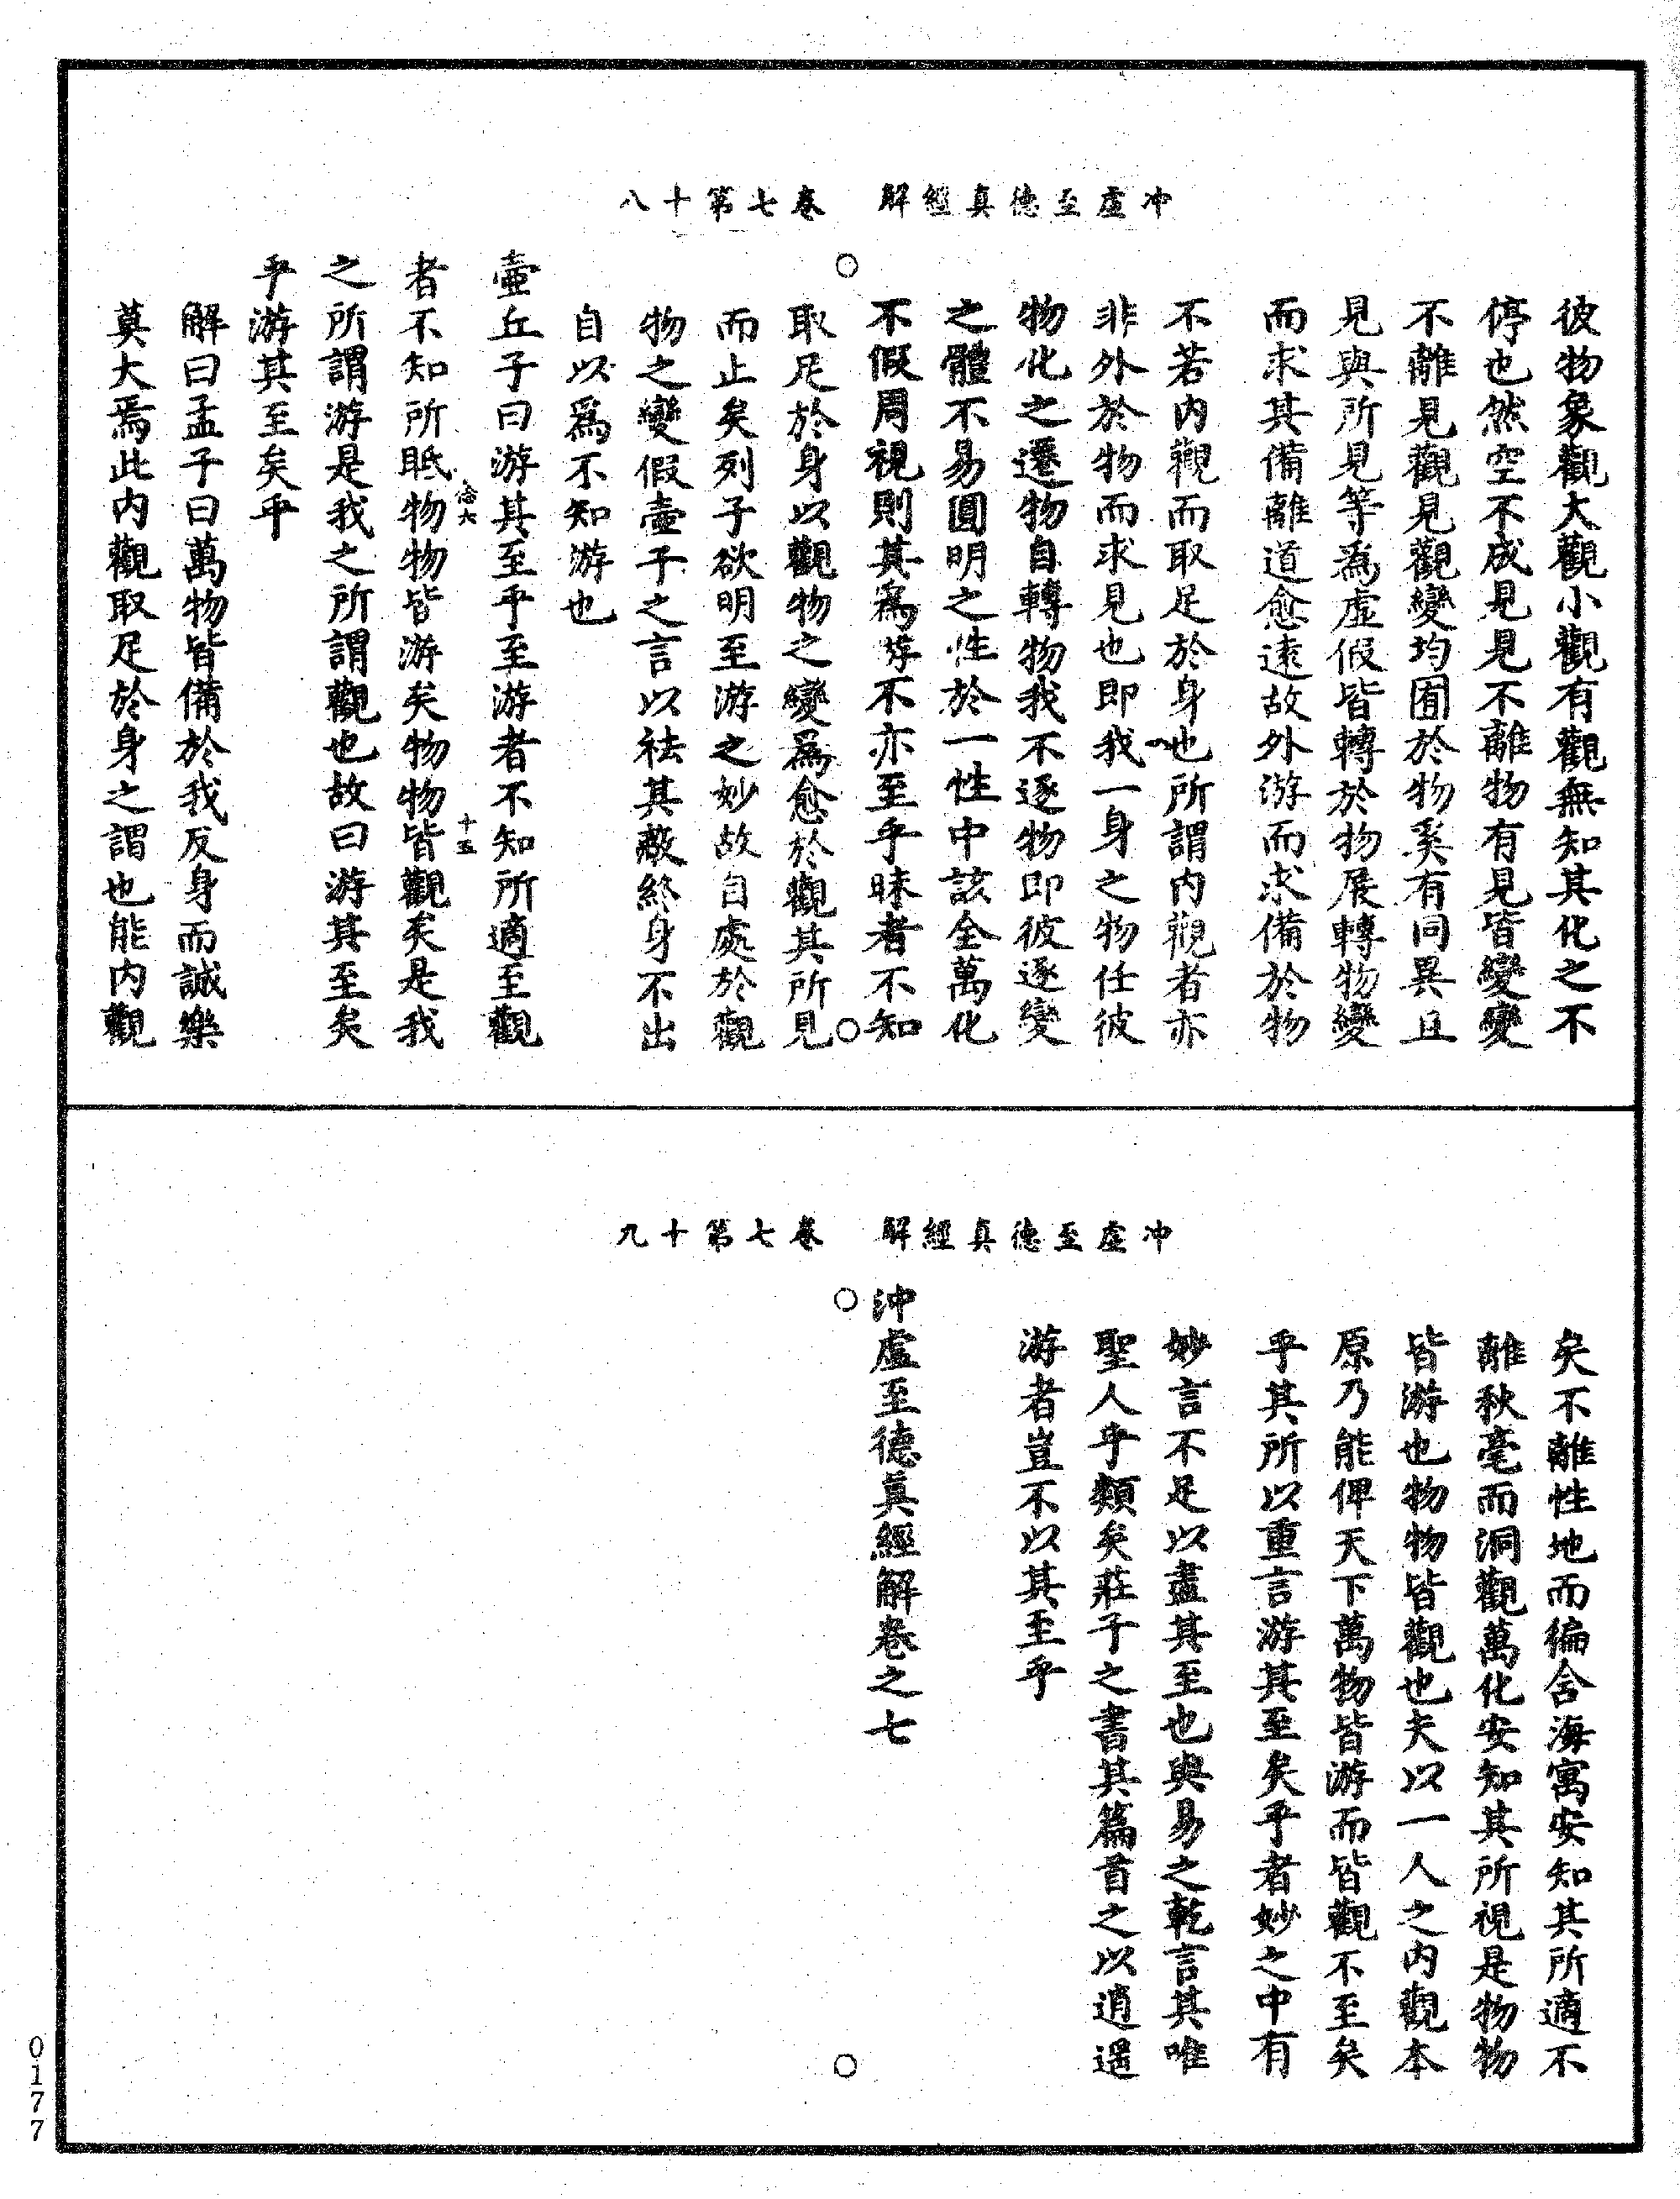 冲虛至德真經解　卷七第十八
彼物象觀大觀小觀有觀無知其化之不
停也然空不成見見不離物有見皆變變
不離見觀見觀變均囿於物奚有同異且
見與所見等為虛假皆轉於物展轉物變
而求其備離道愈遠故外游而求備於物
不若內觀而取足於身也所謂內觀者亦
非外於物而求見也即我一身之物任彼
物化之遷物自轉物我不逐物即彼逐變
之體不易圓明之性於一性中該全萬化
不假周視則其為游不亦至乎昧者不知
取足於身以觀物之變為愈於觀其所見
而止矣列子欲明至游之妙故自處於觀
物之變假壺子之言以祛其蔽終身不出
自以為不知游也
壺丘子曰游其至乎至游者不知所適至觀
念六　十五
者不知所眂物物皆游矣物物皆觀矣是我
之所謂游是我之所謂觀也故曰游其至矣
乎游其至矣乎
解曰孟子曰萬物皆備於我反身而誠樂
莫大焉此內觀取足於身之謂也能內觀
冲虛至德真經解　卷七第十九
矣不離性地而徧含海寓安知其所適不
離秋毫而洞觀萬化安知其所視是物物
皆游也物物皆觀也夫以一人之內觀本
原乃能俾天下萬物皆游而皆觀不至矣
乎其所以重言游其至矣乎者妙之中有
妙言不足以盡其至也與易之乾言其唯
聖人乎類矣莊子之書其篇首之以逍遙
游者豈不以其至乎
沖虛至德真經解卷之七
0177